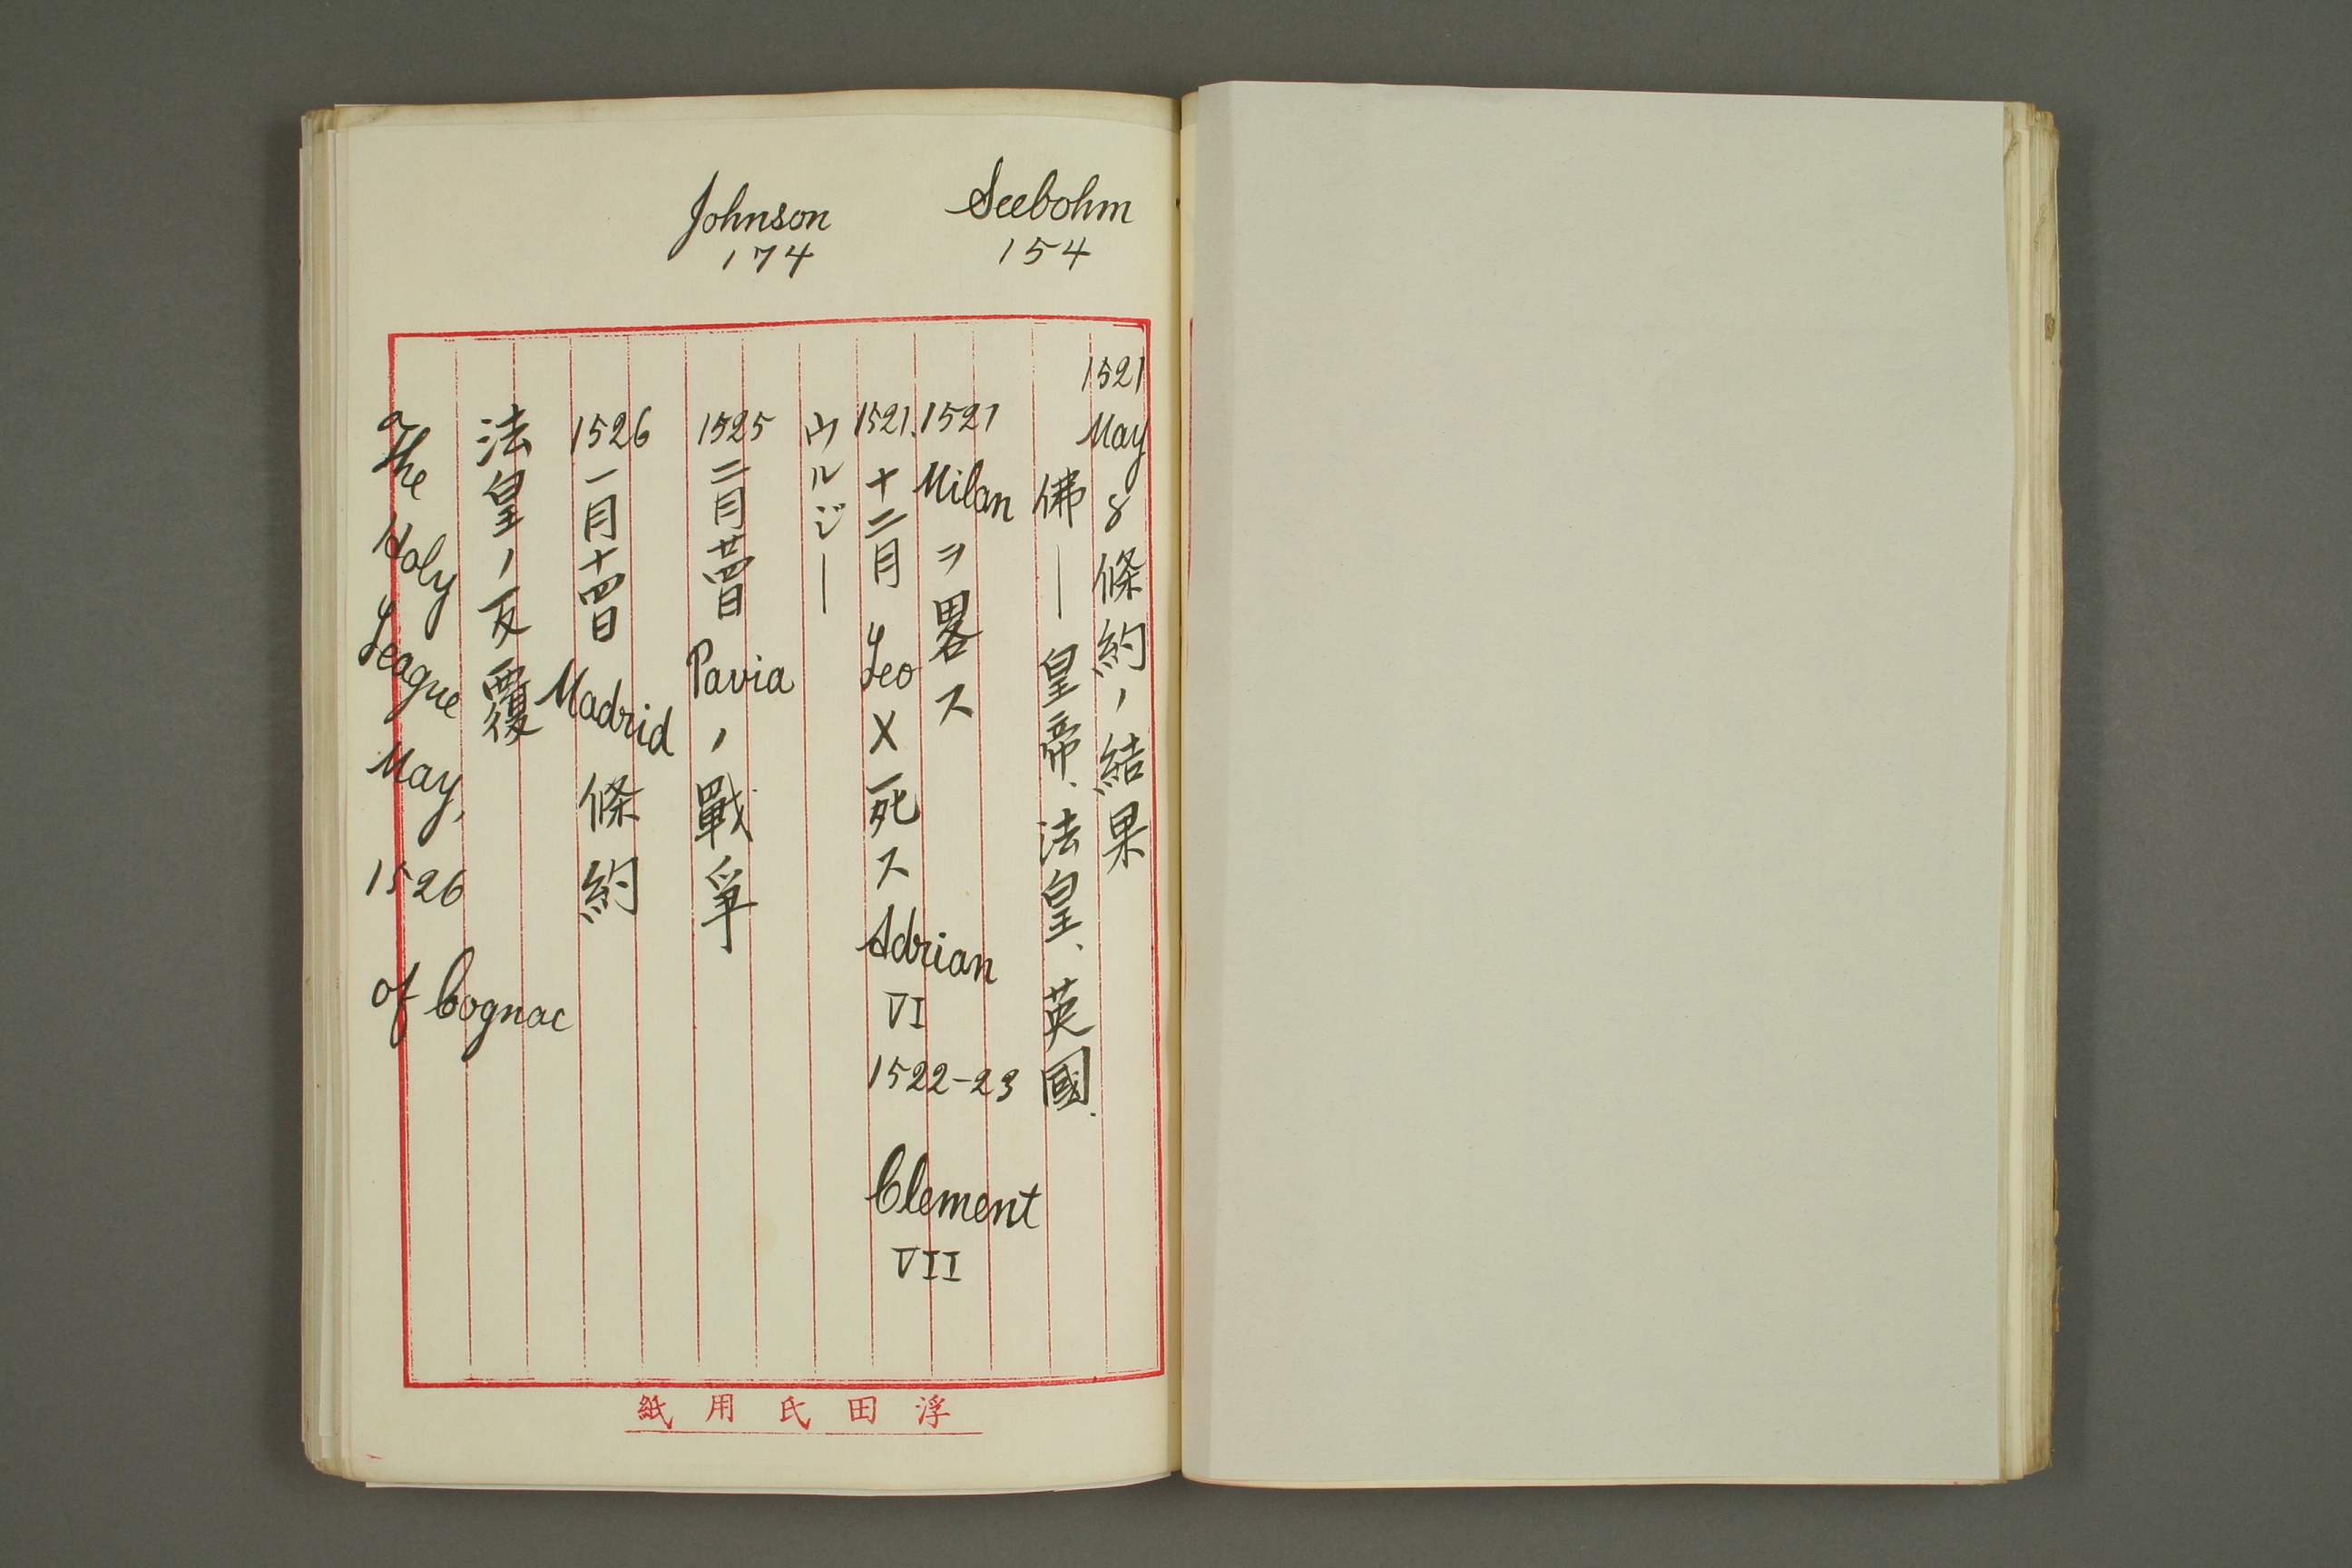 Seebohm
154
Johnson
174
1521 May 8 條約ノ結果
佛—皇帝、法皇、英國、
1521 Milan ヲ畧ス
1521. 十二月 Leo X 死ス Adrian VI 1522-23 Clement VII
ウルジー
1525 二月廿四日 Pavia ノ戰爭
1526 一月十四日 Madrid 條約
法皇ノ反覆
The Holy League May, 1526 of Cognac
浮田氏用紙